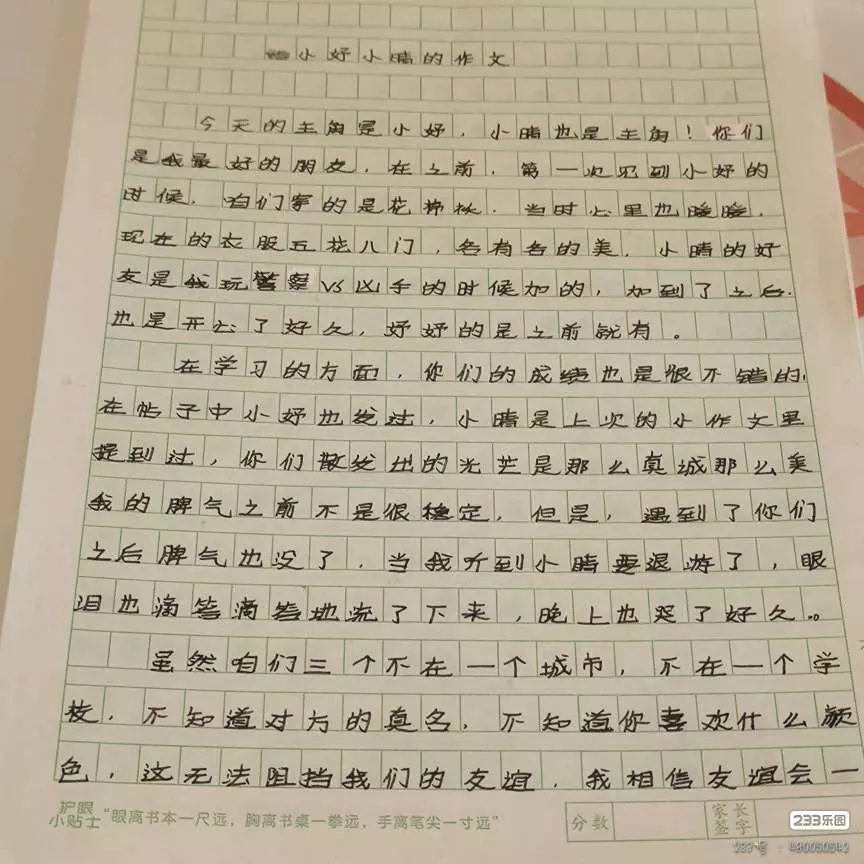 小妤小晴的作文
今天的主角是小妤，小晴也是主角！你们
是我最好的朋友，在之前，第一次见到小妤的
时候，咱们穿的是花棉袄，当时心里也暖暖，
现在的衣服五花八门，各有各的美，小晴的好
友是我玩警察vs凶手的时候加的，加到了之后，
也是开心了好久，妤妤的是之前就有。
在学习的方面，你们的成绩也是很不错的，
在帖子中小妤也发过，小晴是上次的小作文里
提到过，你们散发出的光芒是那么真城那么美
我的脾气之前不是很稳定，但是，遇到了你们
之后脾气也没了，当我听到小晴要退游了，眼
泪也滴答滴答地流了下来，晚上也哭了好久。
虽然咱们三个不在一个城市，不在一个学
校，不知道对方的真名，不知道你喜欢什么颜
色，这无法阻挡我们的友谊，我相信友谊会一
护眼小贴士“眼离书本一尺远，胸离书桌一拳远，手离笔尖一寸远”
分数
家长签字
233乐园
233号：480050542